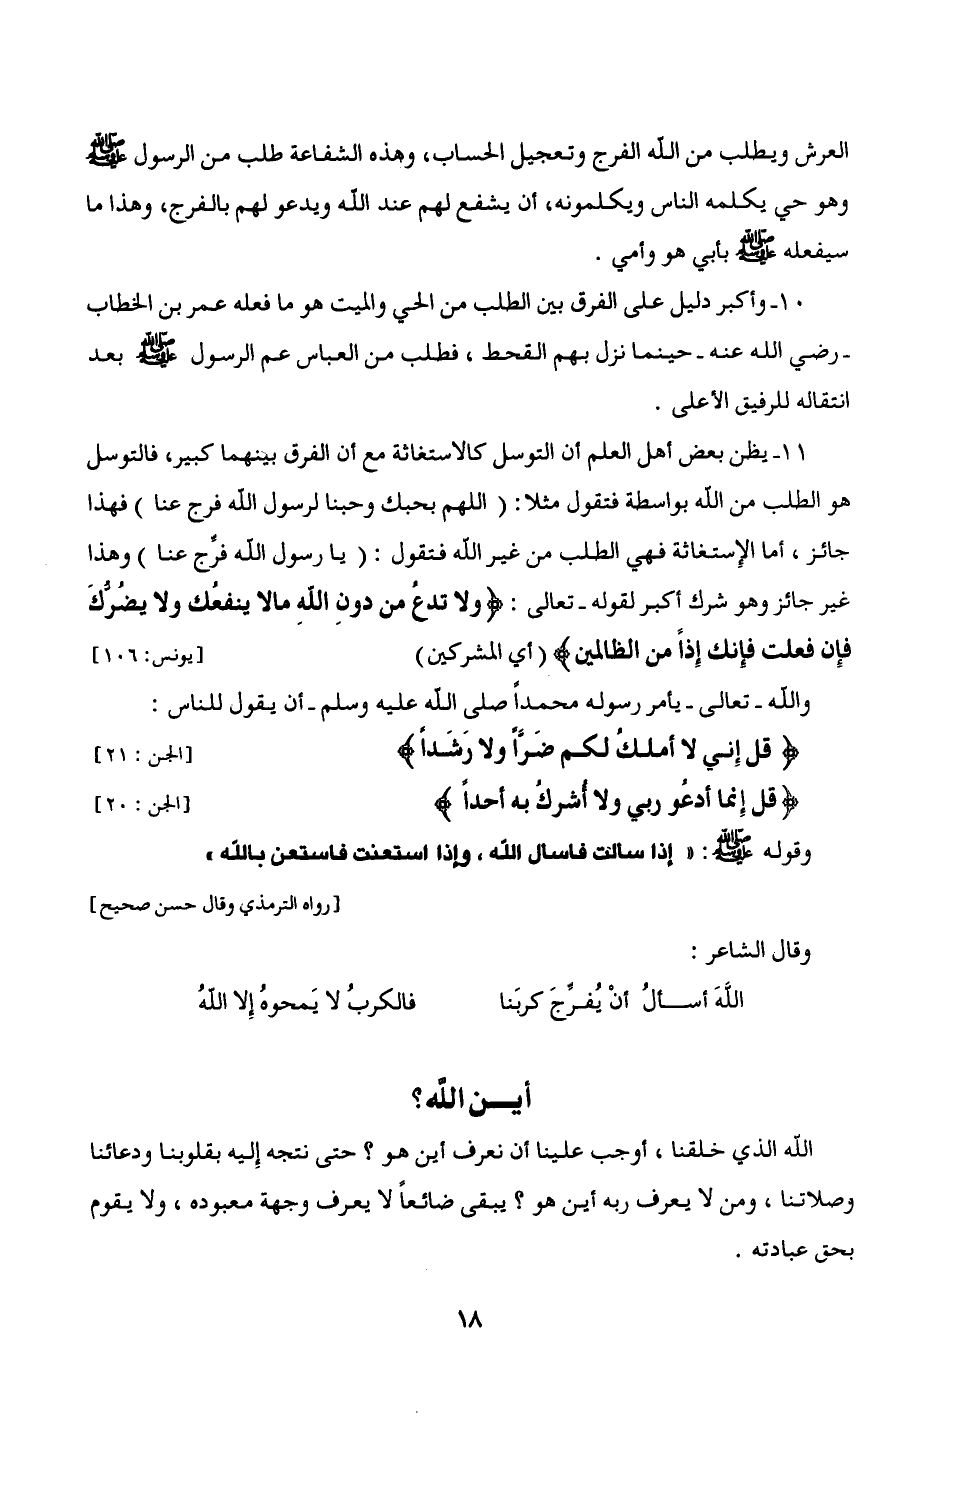 العرش ويطلب من الله الفرج وتعجيل الحساب، وهذه الشفاعة طلب من الرسول ﷺ
وهو حي يكلمه الناس ويكلمونه، أن يشفع لهم عند الله ويدعو لهم بالفرج، وهذا ما
سيفعله ﷺ بأبي هو وأمي .
١٠ـ وأكبر دليل على الفرق بين الطلب من الحي والميت هو ما فعله عمر بن الخطاب
ـ رضي الله عنه ـ حينما نزل بهم القحط ، فطلب من العباس عم الرسول ﷺ بعد
انتقاله للرفيق الأعلى .
١١ـ يظن بعض أهل العلم أن التوسل كالاستغاثة مع أن الفرق بينهما كبير، فالتوسل
هو الطلب من الله بواسطة فتقول مثلا: ( اللهم بحبك وحبنا لرسول الله فرج عنا ) فهذا
جائز ، أما الإستغاثة فهي الطلب من غير الله فتقول : ( يا رسول الله فرِّج عنا ) وهذا
غير جائز وهو شرك أكبر لقوله ـ تعالى : ﴿ولا تدعُ من دونِ اللهِ مالا ينفعُك ولا يضرُّكَ
فإن فعلت فإنك إذاً من الظالمين﴾ ( أي المشركين ) [يونس: ١٠٦]
والله ـ تعالى ـ يأمر رسوله محمداً صلى الله عليه وسلم ـ أن يقول للناس :
﴿ قل إني لا أملكُ لكم ضَرَّاً ولا رَشَداً ﴾ [الجن : ٢١]
﴿قل إنما أدعُو ربي ولا أُشركُ به أحداً ﴾ [الجن : ٢٠]
وقوله ﷺ: « إذا سالت فاسال الله ، وإذا استعنت فاستعن بالله »
[رواه الترمذي وقال حسن صحيح]
وقال الشاعر :
اللَّهَ أســألُ أنْ يُفرِّجَ كربَنا فالكربُ لا يَمحوهُ إلا اللهُ
أيــن الله؟
الله الذي خلقنا ، أوجب علينا أن نعرف أين هو ؟ حتى نتجه إليه بقلوبنا ودعائنا
وصلاتنا ، ومن لا يعرف ربه أين هو ؟ يبقى ضائعاً لا يعرف وجهة معبوده ، ولا يقوم
بحق عبادته .
١٨